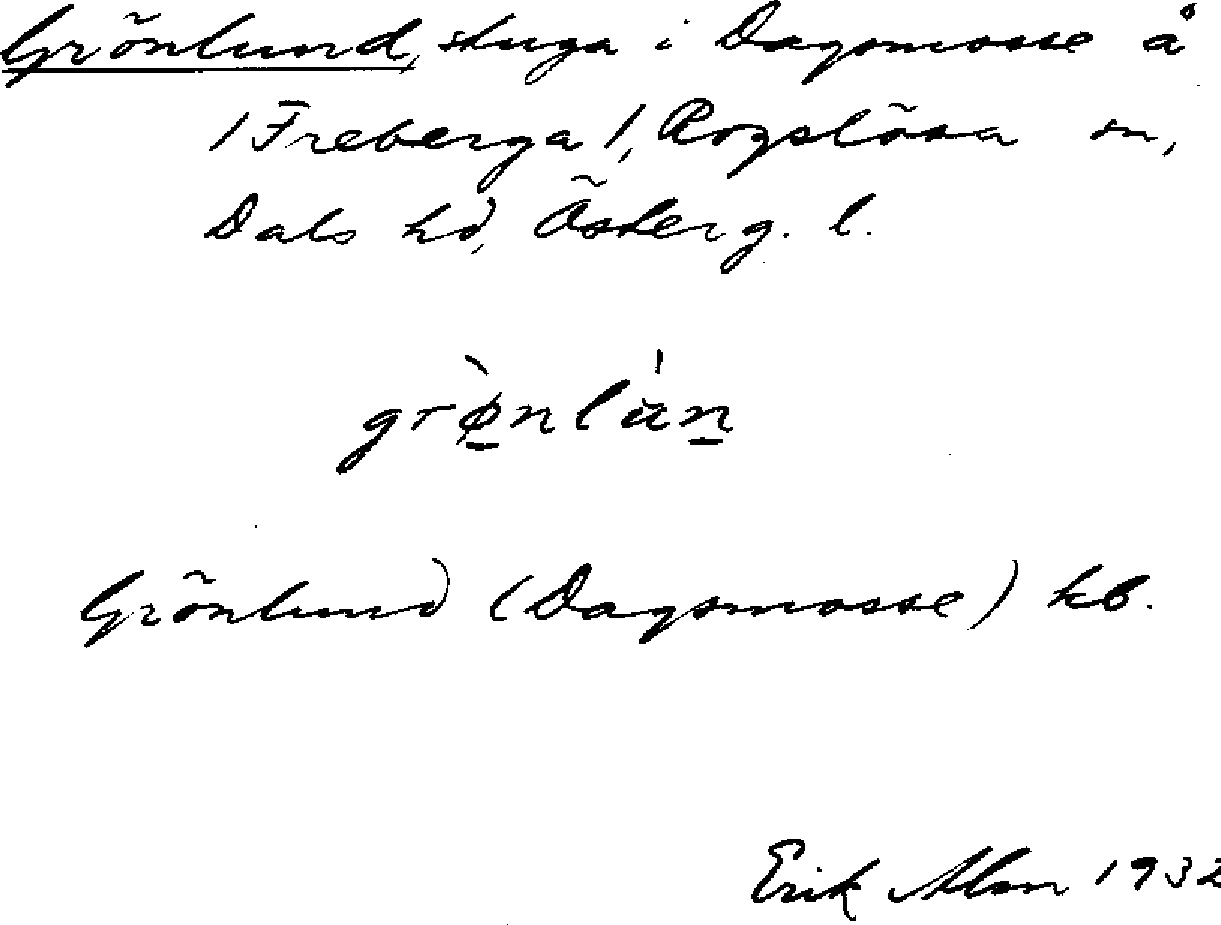 Grönlund, stuga i Dagsmosse å
/Freberga/, Rogslösa sn,
Dals hd, Österg. l.
grø̀nlun
Grönlund (Dagsmosse) kb.
Erik Alm 1932